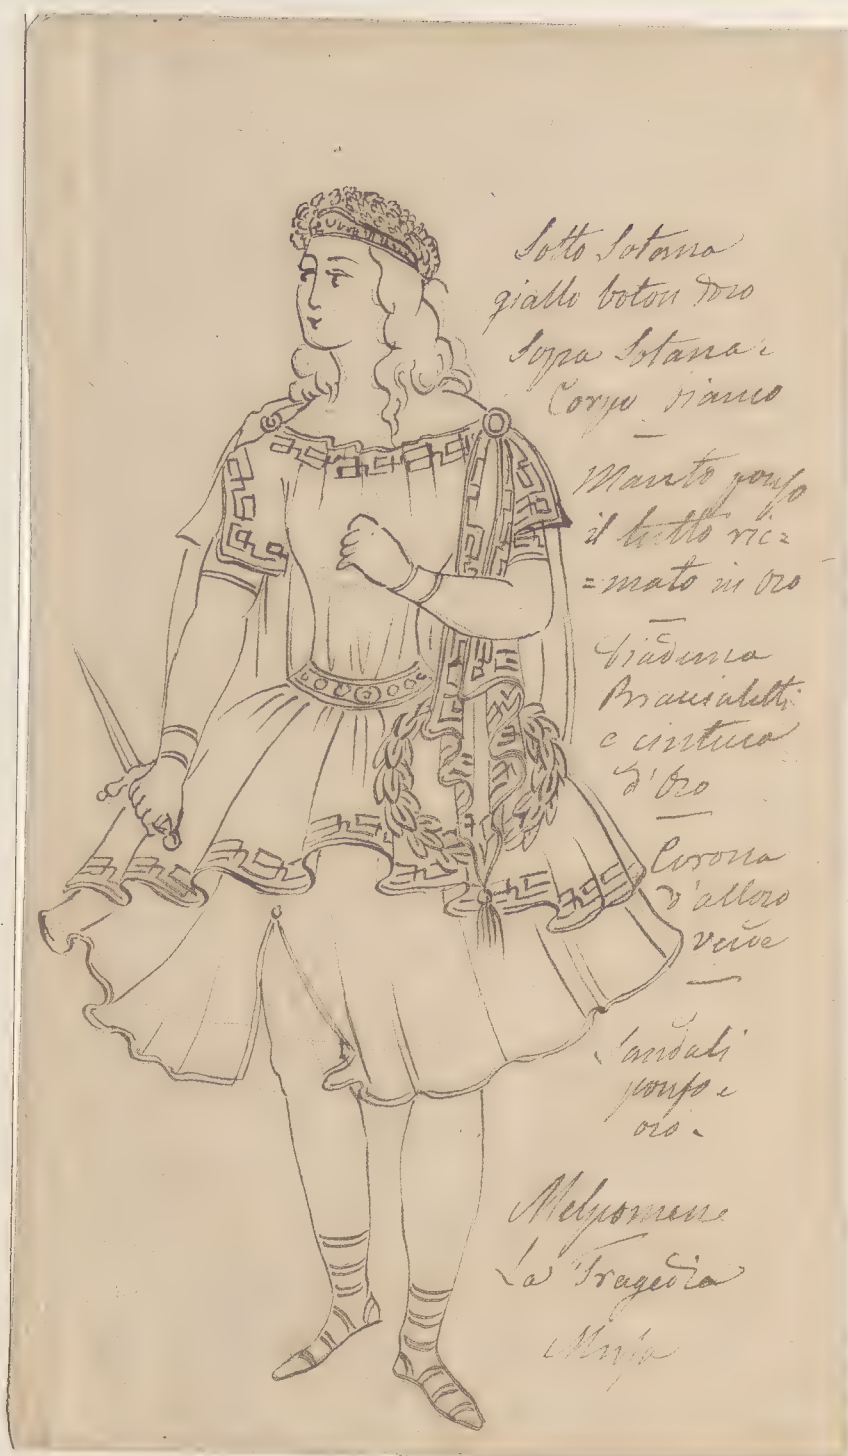 Sotto Sotana
giallo boton d'oro
Sopra Sotana e
Corpo bianco
Manto ponso
il tutto ric=
=mato in Oro
Diadema
Braccialetti
e cintura
d'Oro
Corona
d'alloro
verde
Sandali
ponso e
oro.
Melpomene
La Tragedia
Musa